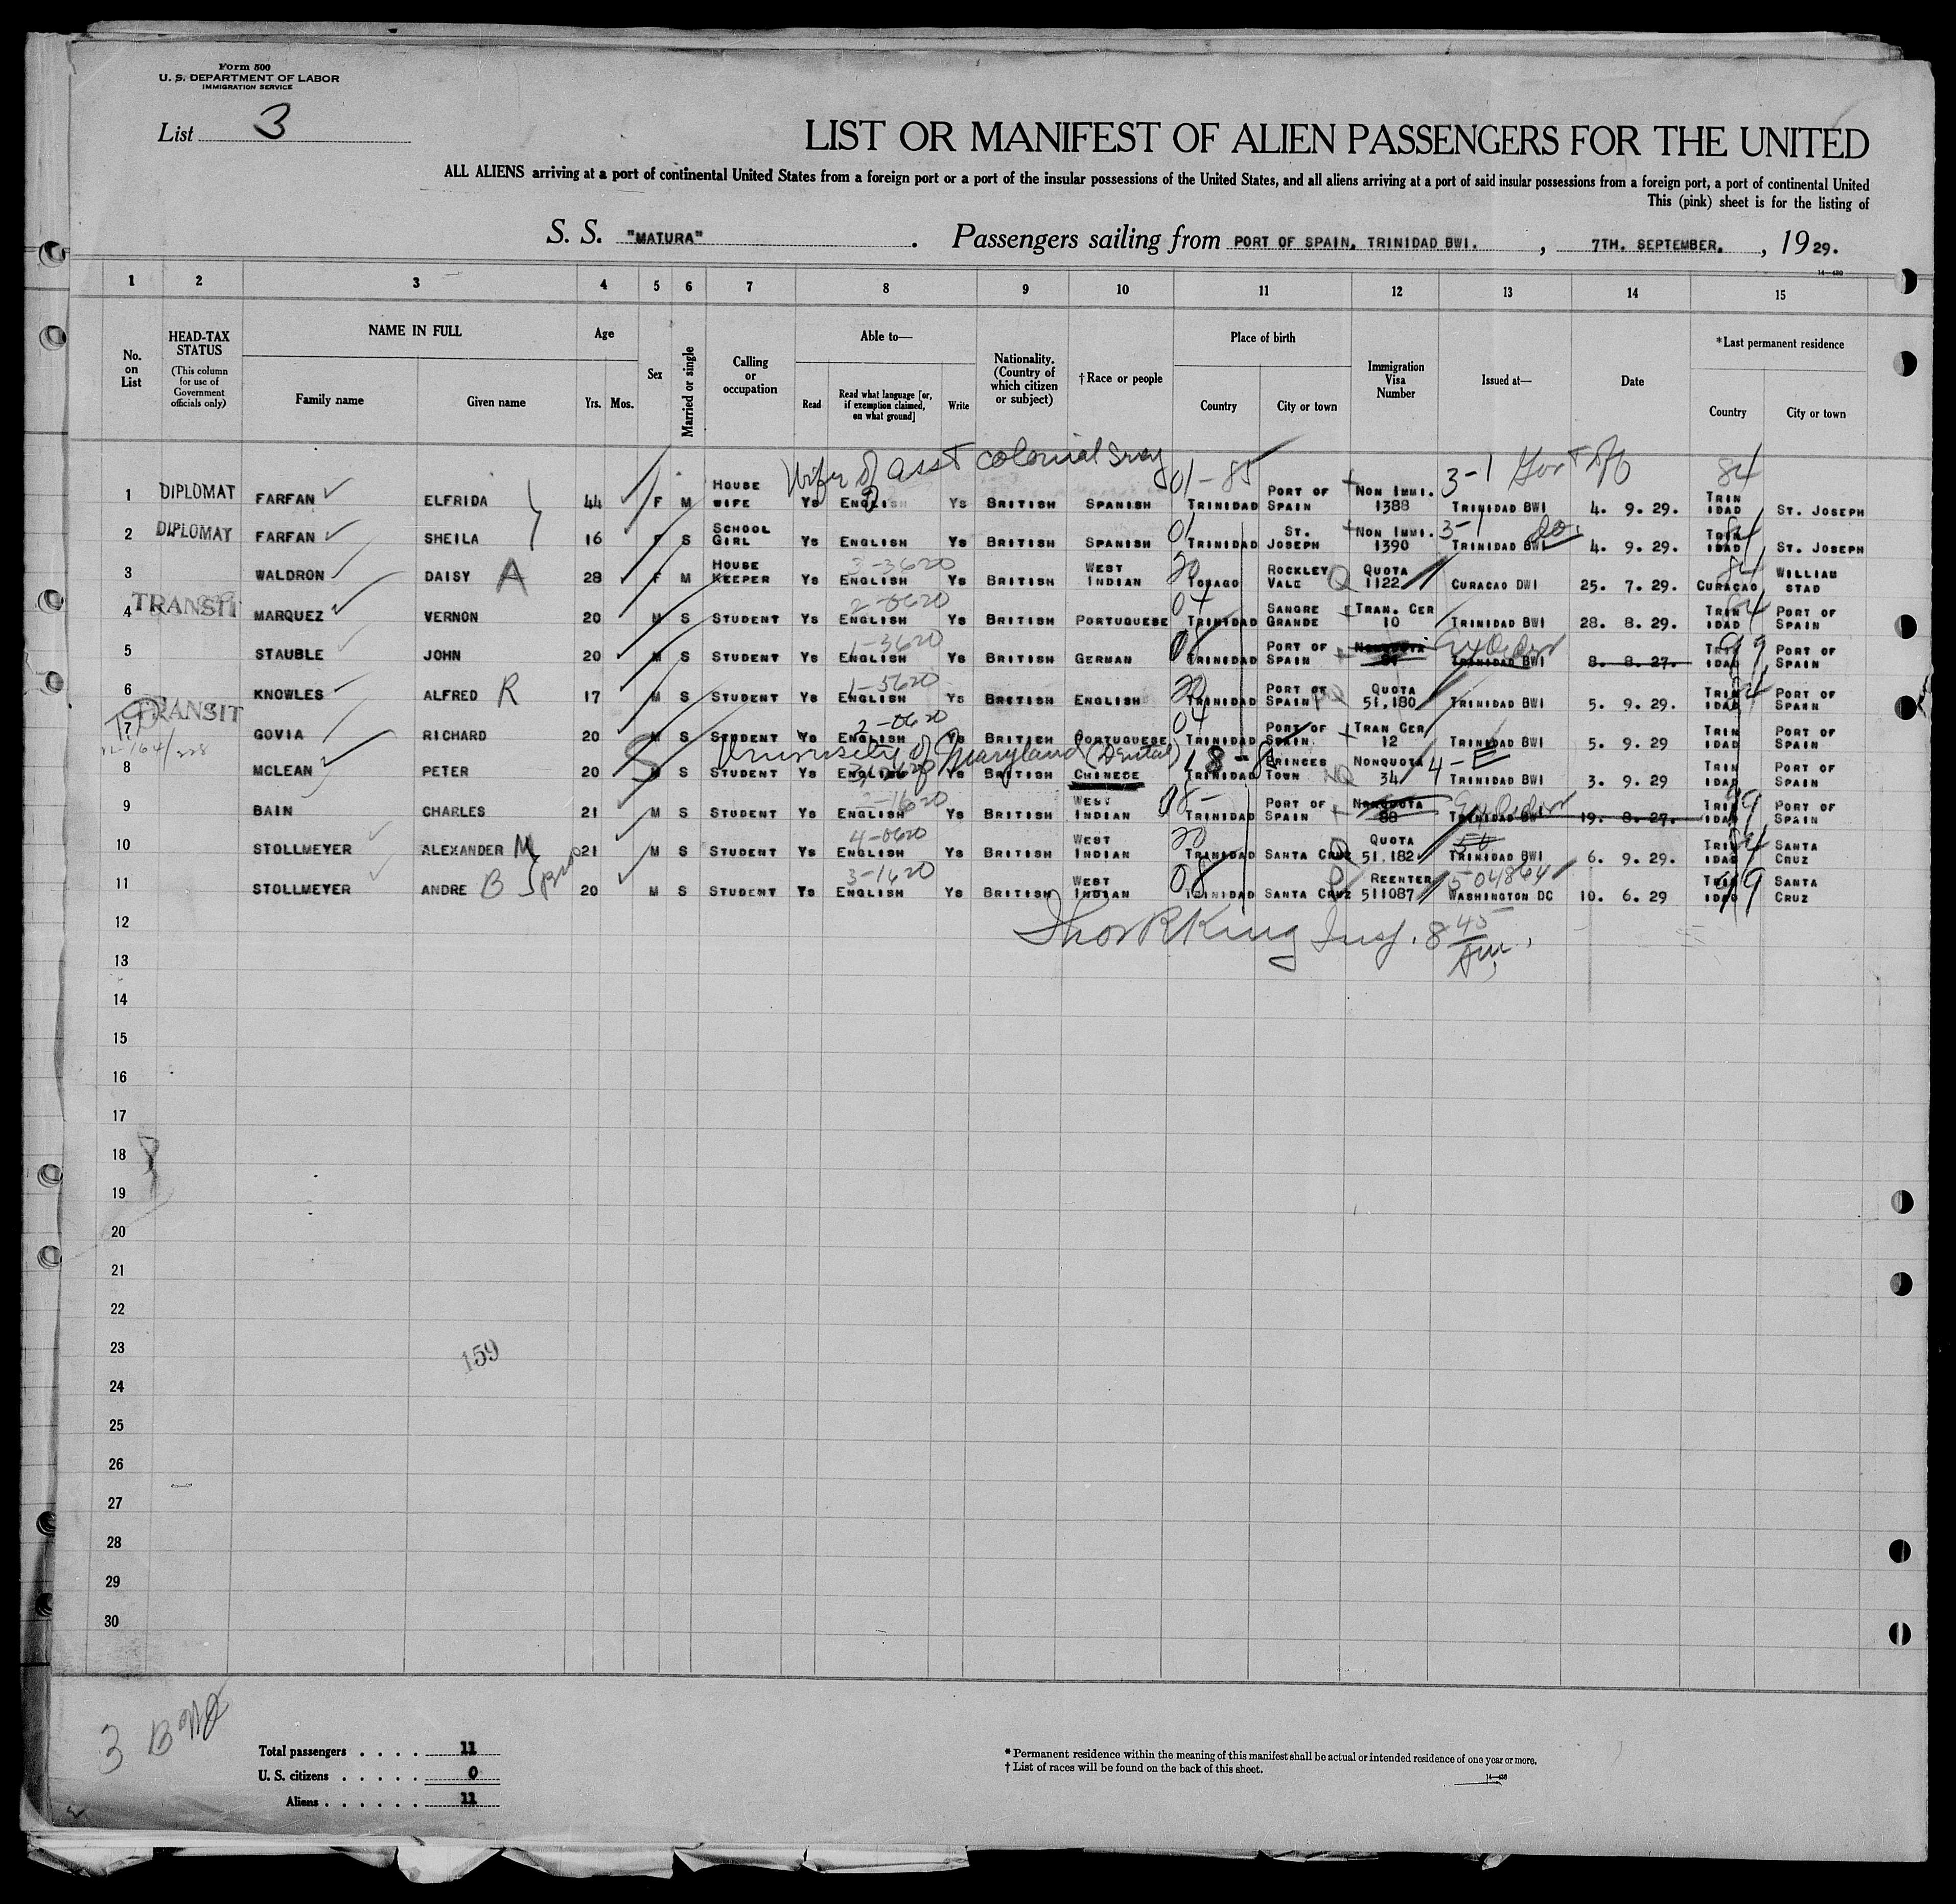 Form 500
U. S. DEPARTMENT OF LABOR
IMMIGRATION SERVICE
List 3
LIST OR MANIFEST OF ALIEN PASSENGERS FOR THE UNITED
ALL ALIENS arriving at a port of continental United States from a foreign port or a port of the insular possessions of the United States, and all aliens arriving at a port of said insular possessions from a foreign port, a port of continental United
This (pink) sheet is for the listing of
S. S. "MATURA" . Passengers sailing from PORT OF SPAIN, TRINIDAD BWI. , 7TH. SEPTEMBER. , 1929.
14—430
1 2 3 4 5 6 7 8 9 10 11 12 13 14 15
No. on List
HEAD-TAX STATUS (This column for use of Government officials only)
NAME IN FULL
Family name
Given name
Age
Yrs. Mos.
Sex
Married or single
Calling or occupation
Able to—
Read
Read what language [or, if exemption claimed, on what ground]
Write
Nationality. (Country of which citizen or subject)
† Race or people
Place of birth
Country
City or town
Immigration Visa Number
Issued at—
Date
*Last permanent residence
Country
City or town
Wife of asst colonial Secy 01-85 3-1 84
1 DIPLOMAT FARFAN ELFRIDA 44 F M HOUSE WIFE YS ENGLISH YS BRITISH SPANISH TRINIDAD PORT OF SPAIN NON IMMI. 1388 TRINIDAD BWI 4. 9. 29. TRINIDAD ST. JOSEPH
2 DIPLOMAT FARFAN SHEILA 16 F S SCHOOL GIRL YS ENGLISH YS BRITISH SPANISH 01 TRINIDAD ST. JOSEPH NON IMMI. 1390 3-1 do. TRINIDAD BWI 4. 9. 29. TRINIDAD 84 ST. JOSEPH
3 WALDRON DAISY A 28 F M HOUSE KEEPER YS ENGLISH 3-3620 YS BRITISH WEST INDIAN 20 TOBAGO ROCKLEY VALE Q QUOTA 1122 CURACAO DWI 25. 7. 29. CURACAO 84 WILLIAM STAD
4 TRANSIT MARQUEZ VERNON 20 M S STUDENT YS ENGLISH 2-0620 YS BRITISH PORTUGUESE 04 TRINIDAD SANGRE GRANDE TRAN. CER 10 TRINIDAD BWI 28. 8. 29. TRINIDAD 84 PORT OF SPAIN
5 STAUBLE JOHN 20 M S STUDENT YS ENGLISH 1-3620 YS BRITISH GERMAN 08 TRINIDAD PORT OF SPAIN NONQUOTA TRINIDAD BWI 8. 8. 27. TRINIDAD 99 PORT OF SPAIN
6 KNOWLES ALFRED R 17 M S STUDENT YS ENGLISH 1-5620 YS BRITISH ENGLISH 20 TRINIDAD PORT OF SPAIN QUOTA 51,180 TRINIDAD BWI 5. 9. 29. TRINIDAD 84 PORT OF SPAIN
7 TRANSIT GOVIA RICHARD 20 M S STUDENT YS ENGLISH 2-0620 YS BRITISH PORTUGUESE 04 TRINIDAD PORT OF SPAIN TRAN CER 12 TRINIDAD BWI 5. 9. 29 TRINIDAD PORT OF SPAIN
University of Maryland (Dental)
8 MCLEAN PETER 20 M S STUDENT YS ENGLISH YS BRITISH CHINESE 18-8 TRINIDAD PRINCES TOWN NQ NONQUOTA 34 4-E TRINIDAD BWI 3. 9. 29 TRINIDAD PORT OF SPAIN
9 BAIN CHARLES 21 M S STUDENT YS ENGLISH YS BRITISH WEST INDIAN 08- TRINIDAD PORT OF SPAIN NONQUOTA 88 TRINIDAD BWI 19. 8. 27. TRINIDAD 99 PORT OF SPAIN
10 STOLLMEYER ALEXANDER M 21 M S STUDENT YS ENGLISH 4-0620 YS BRITISH WEST INDIAN 20 TRINIDAD SANTA CRUZ QUOTA 51,182 TRINIDAD BWI 6. 9. 29. TRINIDAD 84 SANTA CRUZ
11 STOLLMEYER ANDRE B 20 M S STUDENT YS ENGLISH 3-1620 YS BRITISH WEST INDIAN 08 TRINIDAD SANTA CRUZ REENTER 511087 504864 WASHINGTON DC 10. 6. 29 TRINIDAD 99 SANTA CRUZ
12 Thos R King Insp. 8 45 AM.
13
14
15
16
17
18
19
20
21
22
23 159
24
25
26
27
28
29
30
3
Total passengers . . . . 11
U. S. citizens . . . . . 0
Aliens . . . . . . 11
* Permanent residence within the meaning of this manifest shall be actual or intended residence of one year or more.
† List of races will be found on the back of this sheet.
14—430